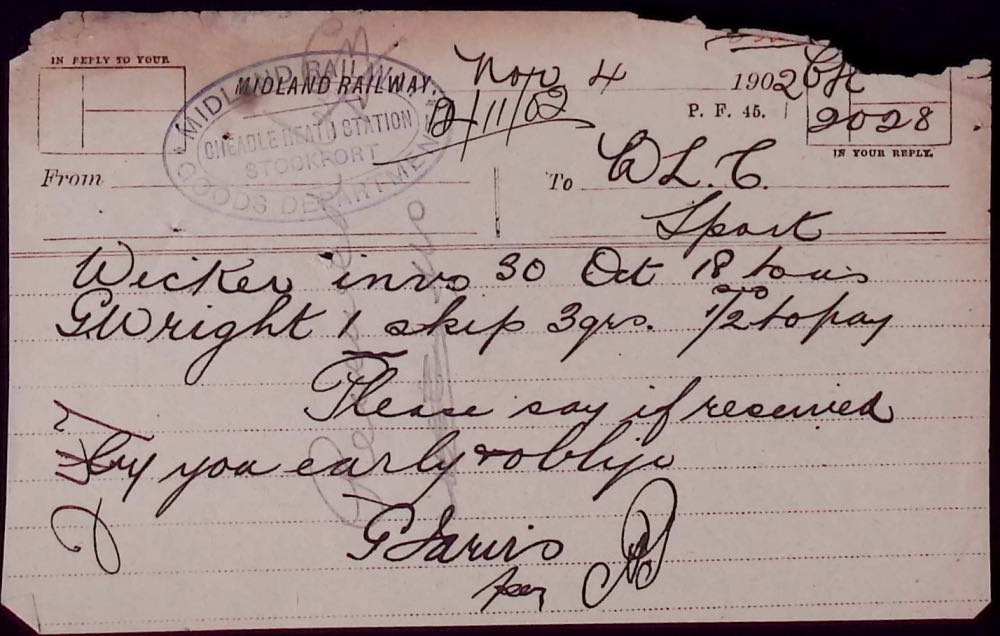 IN REPLY TO YOUR
MIDLAND RAILWAY.
MIDLAND RAILWAY
CHEADLE HEATH STATION
STOCKPORT
GOODS DEPARTMENT
Nov 4 1902
/11/02
P. F. 45.
CH
2028
IN YOUR REPLY.
From
To C L. C.
Sport
Wicker invo 30 Oct 18 to us
G Wright 1 skip 3 qrs. 1/2 to pay
Please say if received
by you early & oblige
G Jarvis
per